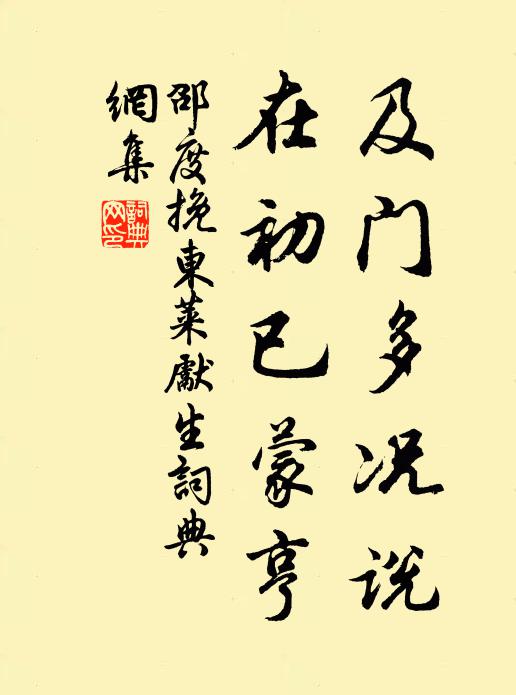 及门多况说
在初已蒙亨
邵度挽東萊獻生詞典
網集
詞典
网印